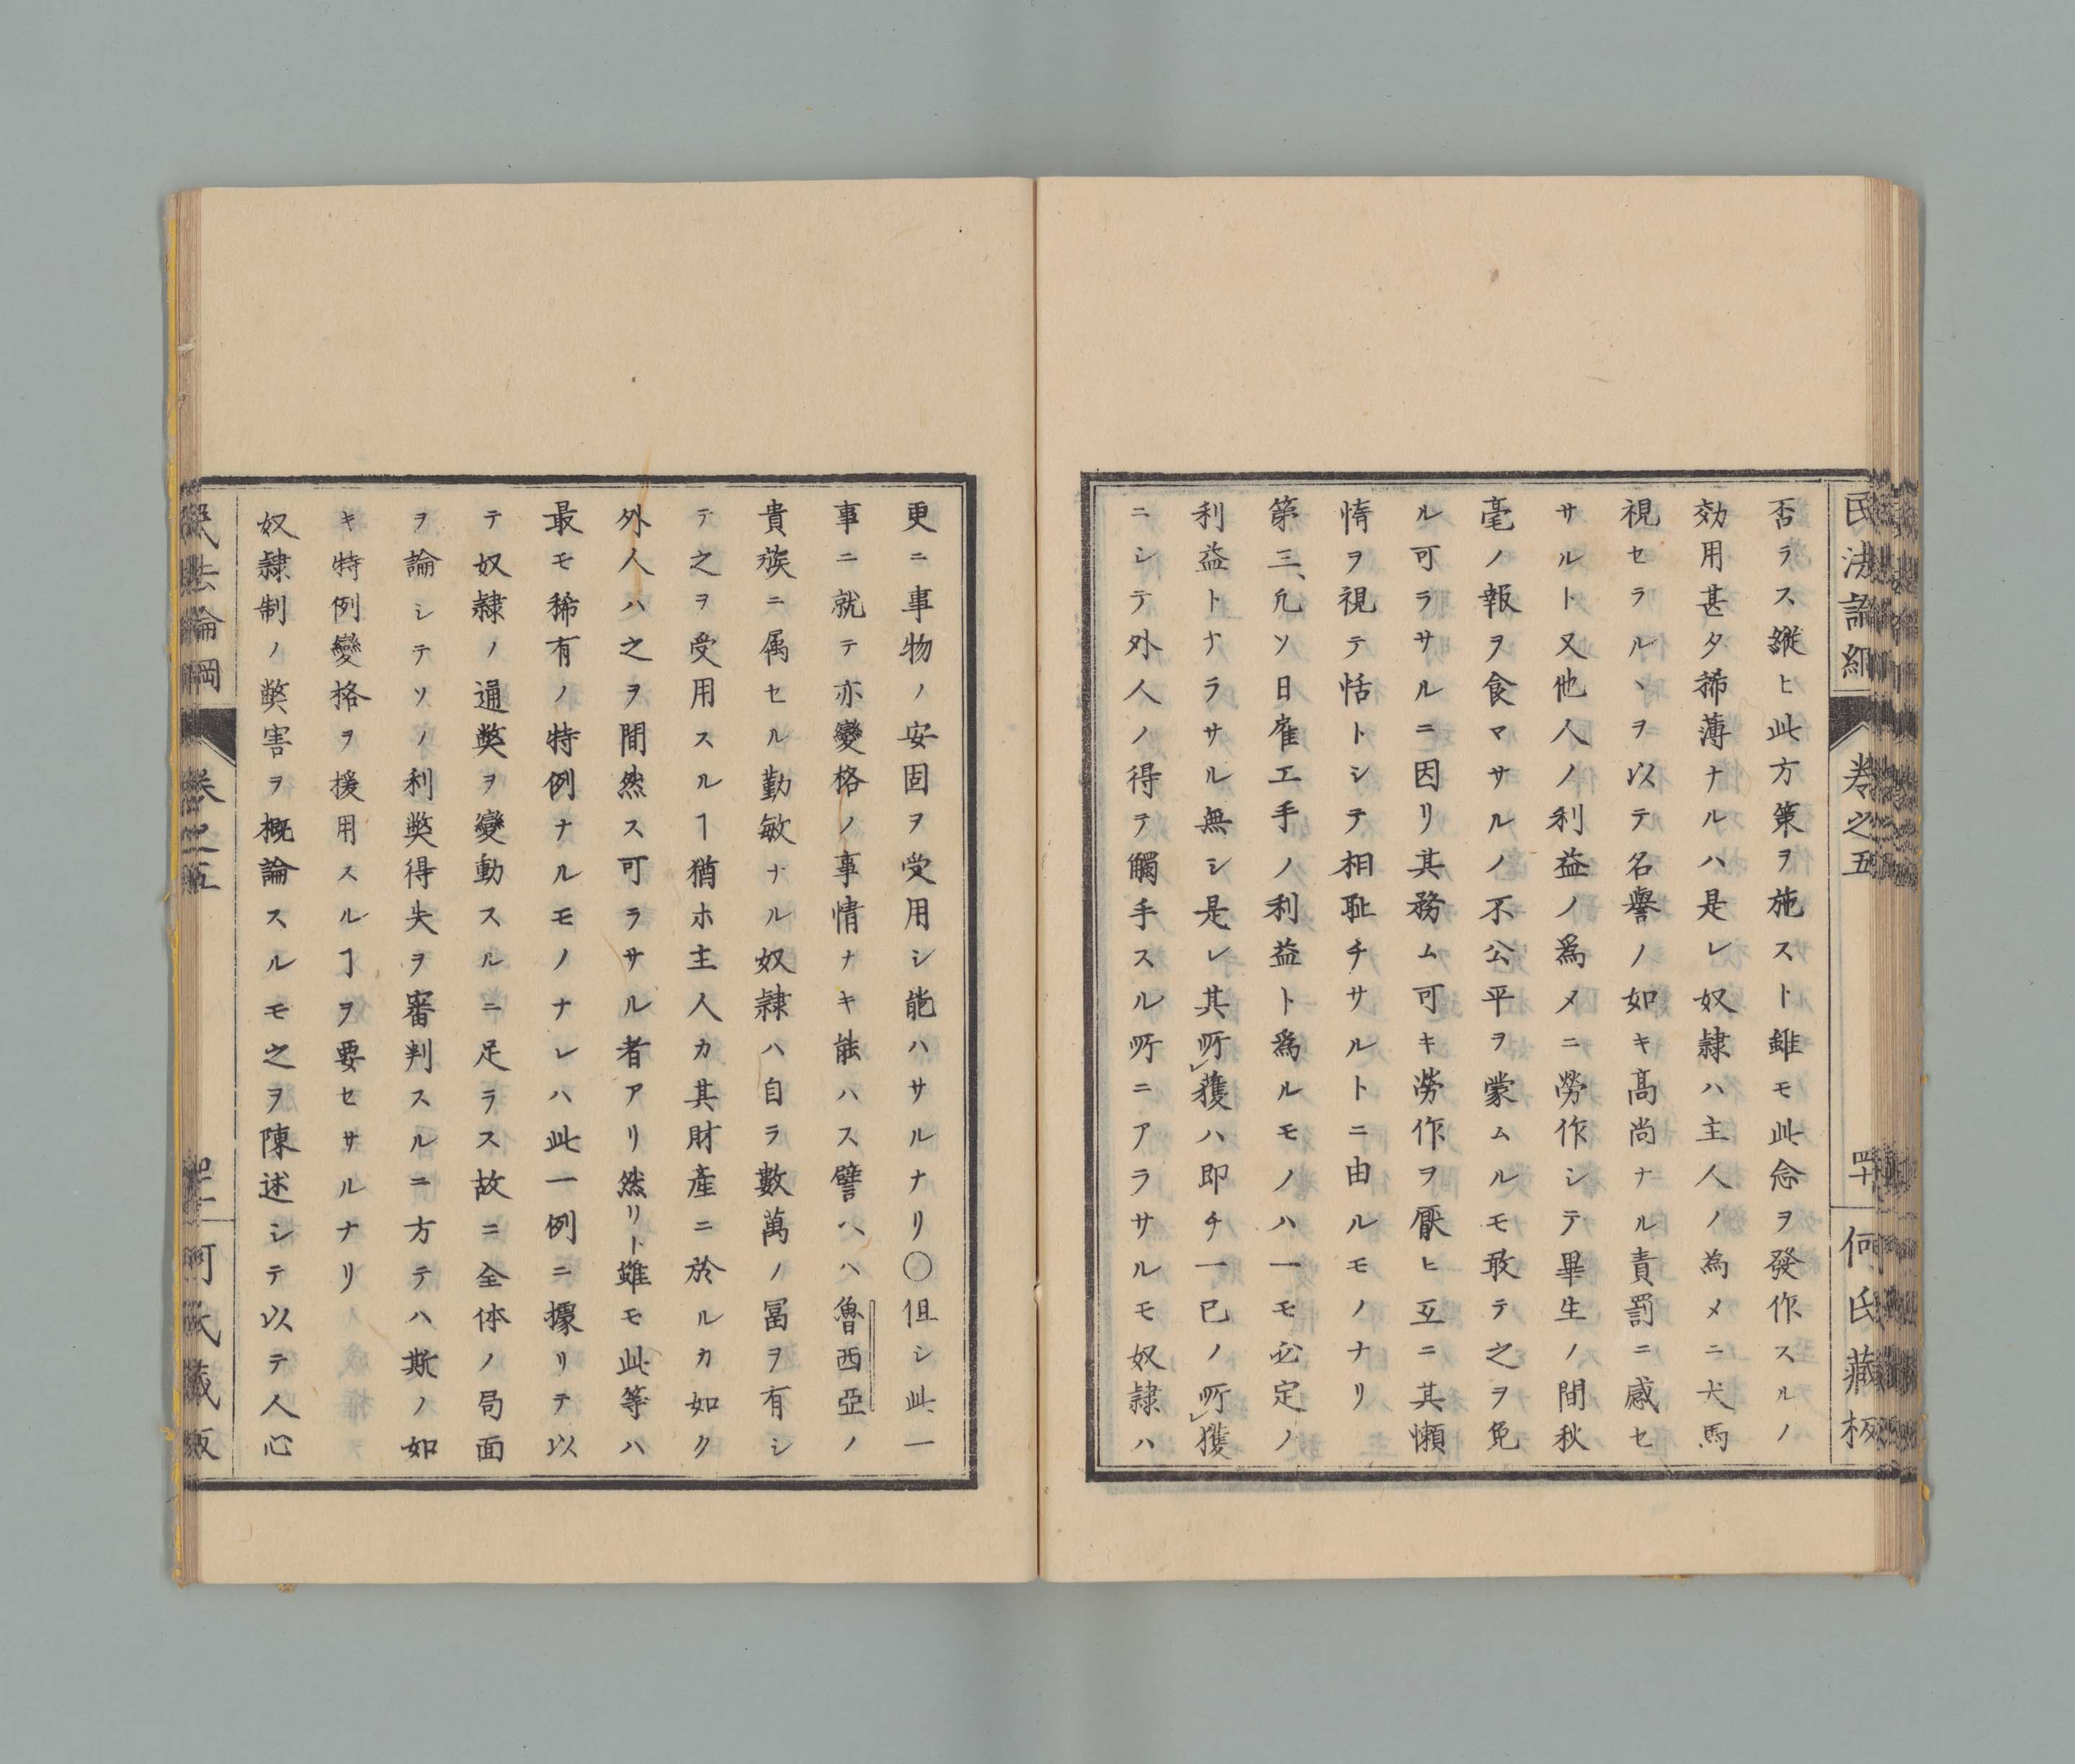 民法論綱
卷之五
四十
何氏藏板
否ラス縱ヒ此方策ヲ施スト雖モ此念ヲ發作スルノ
効用甚タ菲薄ナルハ是レ奴隷ハ主人ノ為メニ犬馬
視セラルヽヲ以テ名譽ノ如キ高尚ナル責罰ニ感セ
サルト又他人ノ利益ノ爲メニ勞作シテ畢生ノ間秋
毫ノ報ヲ食マサルノ不公平ヲ蒙ムルモ敢テ之ヲ免
ル可ラサルニ因リ其務ム可キ勞作ヲ厭ヒ互ニ其懶
惰ヲ視テ恬トシテ相耻チサルトニ由ルモノナリ
第三、凡ソ日雇工手ノ利益ト爲ルモノハ一モ必定ノ
利益トナラサル無シ是レ其所獲ハ即チ一已ノ所獲
ニシテ外人ノ得テ觸手スル所ニアラサルモ奴隷ハ
更ニ事物ノ安固ヲ受用シ能ハサルナリ〇伹シ此一
事ニ就テ亦變格ノ事情ナキ能ハス譬ヘハ魯西亞ノ
貴族ニ属セル勤敏ナル奴隷ハ自ラ數萬ノ冨ヲ有シ
テ之ヲ受用スルヿ猶ホ主人カ其財產ニ於ルカ如ク
外人ハ之ヲ間然ス可ラサル者アリ然リト雖モ此等ハ
最モ稀有ノ特例ナルモノナレハ此一例ニ據リテ以
テ奴隷ノ通獘ヲ變動スルニ足ラス故ニ全体ノ局面
ヲ論シテソノ利獘得失ヲ審判スルニ方テハ斯ノ如
キ特例變格ヲ援用スルヿヲ要セサルナリ
奴隷制ノ獘害ヲ概論スルモ之ヲ陳述シテ以テ人心
民法論綱
卷之五
何氏藏板